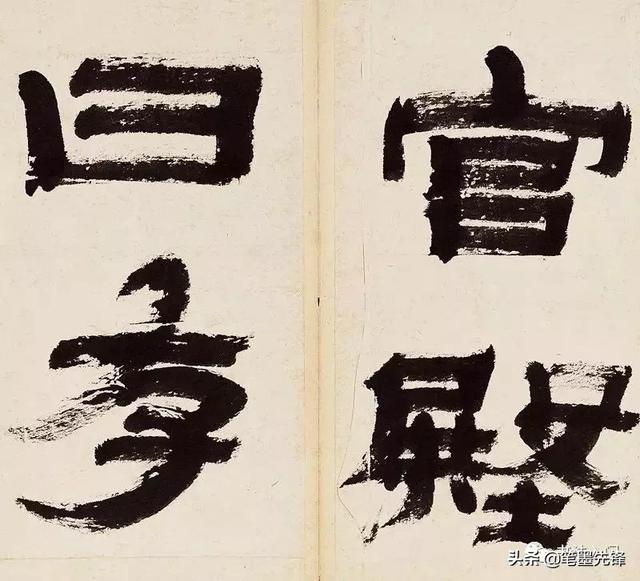 官壂
曰孝
头条 @笔墨先锋